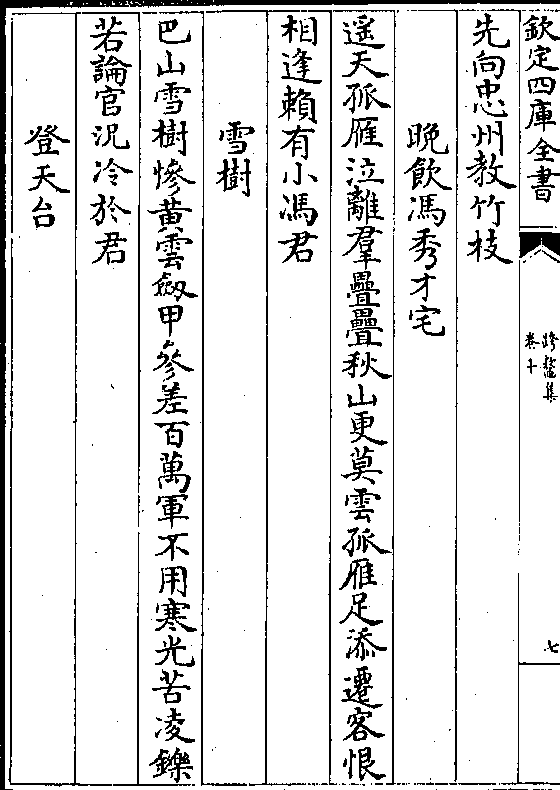 欽定四庫全書
跨鼇集
卷十
七
先向忠州教竹枝
晚飲馮秀才宅
遥天孤雁泣離羣疊疊秋山更莫雲孤雁足添遷客恨
相逢賴有小馮君
雪樹
巴山雪樹慘黄雲劔甲參差百萬軍不用寒光苦凌鑠
若論官況冷於君
登天台